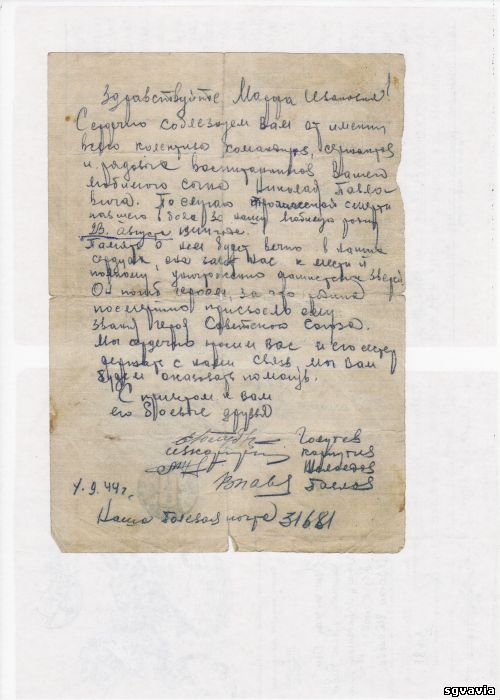 Здравствуйте Марфа Ивановна!
Сердечно соблезнуем Вам от имени
всего колектива командиров, сержантов
и рядовых воспитанников Вашего
любимого сына Николая Павло
вича. По случаю трагической смерти
павшего в боях за нашу любимую родину
23. Августа
Память о нем будет вечно в наших
сердцах, она зовет нас к мести и
полному уничтожению фашистских зверей
Он погиб героем, за что родина
посмертно присвоело ему
звание героя Советского Союза.
Мы сердечно просим Вас и его сестер
держать с нами связь мы Вам
будем оказывать помощь.
С приветом к вам
его боевые друзья
4.9.44г.
Наша полевая почта 31681
sgvavia